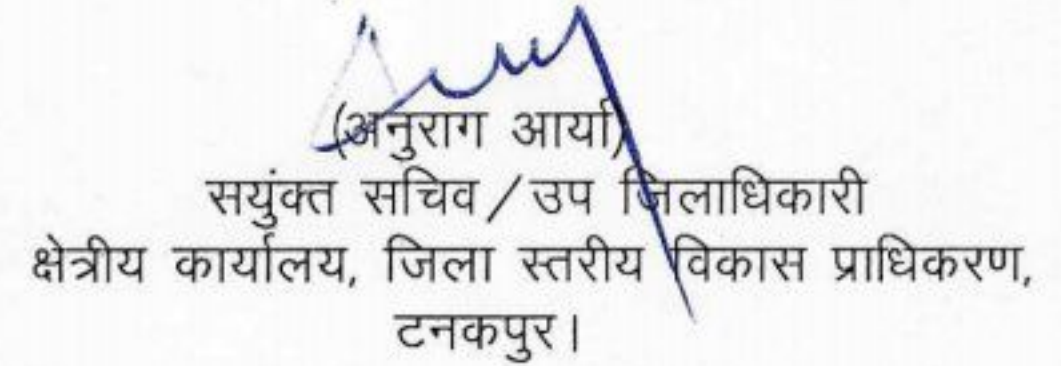 (अनुराग आर्या)
सयुंक्त सचिव/उप जिलाधिकारी
क्षेत्रीय कार्यालय, जिला स्तरीय विकास प्राधिकरण,
टनकपुर।